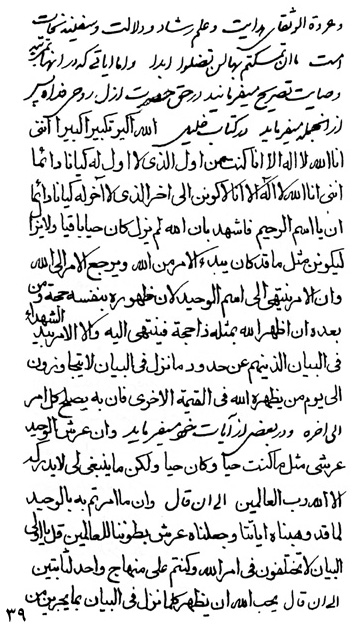 و عروة الوثقای هدایت و علم رشاد و دلالت و سفینه نجات
است ما ان تمسکتم بها لن تضلوا ابدا و اما ایاتی که در انها
وصایت تصریح میفرمایند در حق حضرت ازل روحی فداه پس
از انجمله میفرماید در کتاب الله اکبر تکبیرا کبیرا اننی
انا الله لا اله الا انا کنت من اول الذی لا اول له کیانا دائما
اننی انا الله لا اله الا انا لاکونن الی اخر الذی لا آخر له کیانا دائما
ان یا اسم الرحیم فاشهد بان الله لم یزل کان حیا باقیا ولا یزال
لیکونن مثل ما قد کان یبدء الامر من الله و یرجع الامر الی الله
وان الامر ینتهی الی اسم الوحید لان ظهوره بنفسه حجة و من
بعده ان اظهر الله بمثله ذا حجة فینتهی الیه والا الامر بید الشهداء
فی البیان الذینهم عن حدود ما نزل فی البیان لا یتجاوزون
الی یوم من یظهره الله فی القیمة الاخری فان به یصلح کل امر
الی اخره و در بعض از آیات میفرماید وان عرش الوحید
عرشی مثل ما کنت حیا و کان حیا ولکن ما ینبغی لی لا یدرکه
الا الله رب العالمین الی ان قال وان ما امرتم به بالوحید
لما قد وهبناه ایاتنا وجعلناه عرش بطوننا للعالمین قل یا اولی
البیان لا تختلفون فی امر الله وکنتم علی منهاج واحد لثابتین
الی ان قال یحب الله ان یظهر کلما نزل فی البیان بما یحرین من
۳۹